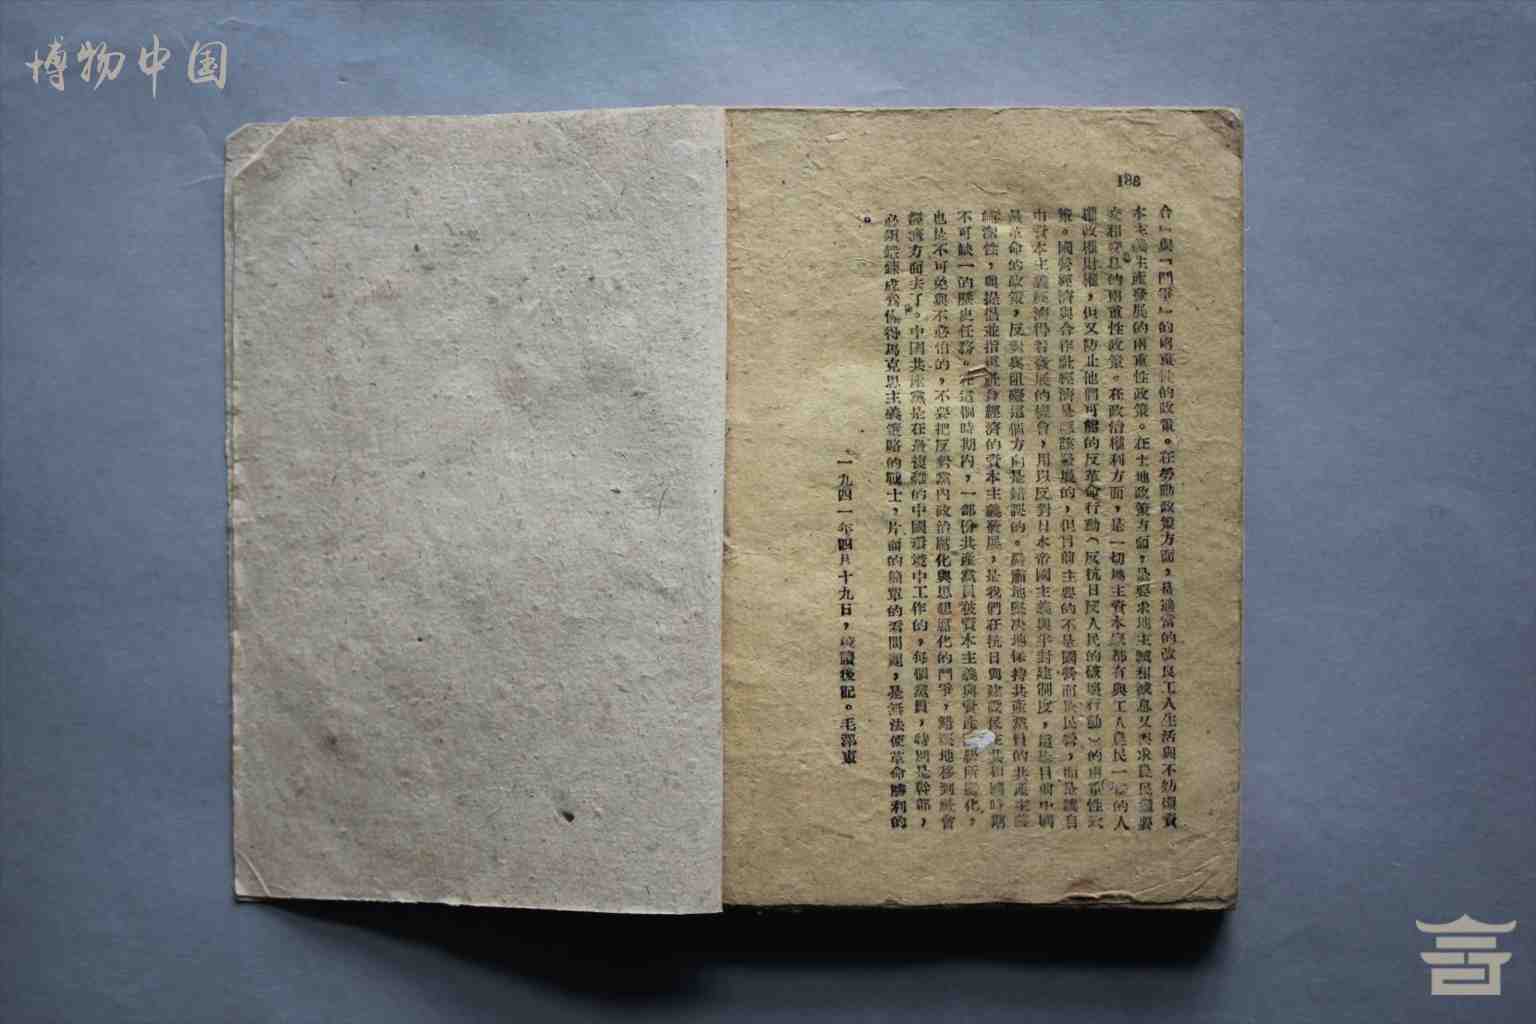 博物中国
188
合』與『鬥爭』的兩重性的政策。在勞動政策方面,是適當的改良工人生活與不妨礙資
本主義生產發展的兩重性政策。在土地政策方面,是要求地主減租減息又要求農民還要
交租交息的兩重性政策。在政治權利方面,是一切地主資本家都有與工人農民一樣的人
權政權財權,但又防止他們可能的反革命行動(反抗日反人民的破壞行動)的兩重性政
策。國營經濟與合作社經濟是應該發展的,但目前主要的不是國營而是民營,而是讓自
由資本主義經濟得着發展的機會,用以反對日本帝國主義與半封建制度,這是目前中國
最革命的政策,反對與阻礙這個方向是錯誤的。嚴肅地堅决地保持共產黨員的共產主義
純潔性,與提倡並指導社會經濟的資本主義發展,是我們在抗日與建設民主共和國時期
不可缺一的歷史任務。在這個時期內,一部份共產黨員被資本主義與資產階級所腐化,
也是不可免與不必怕的,不要把反對黨內政治腐化與思想腐化的鬥爭,錯誤地移到社會
經濟方面去了。中國共產黨是在最複雜的中國環境中工作的,每個黨員,特別是幹部,
必須鍛鍊成爲懂得馬克思主義策略的戰士,片面的簡單的看問題,是無法使革命勝利的
。
一九四一年四月十九日,校讀後記。毛澤東